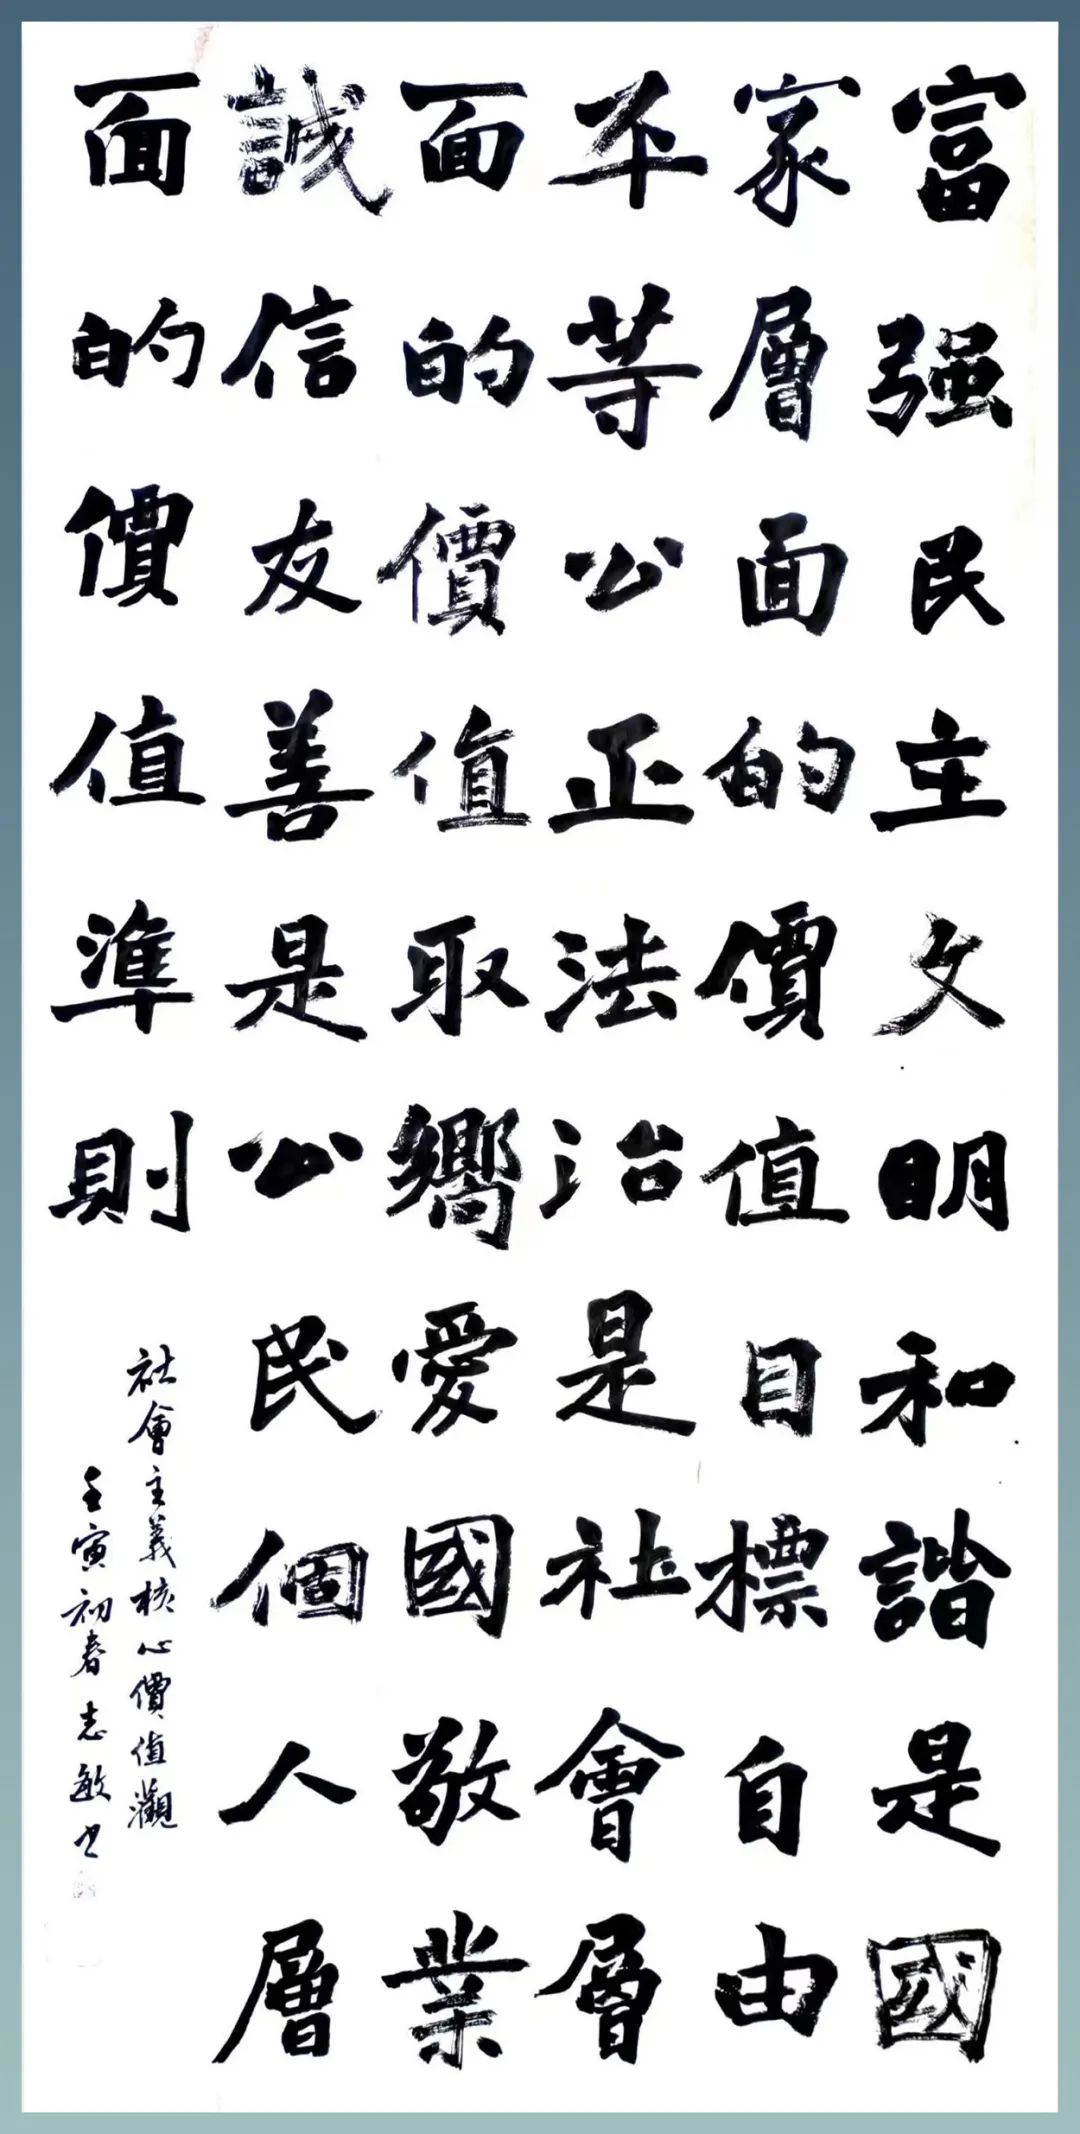 富强民主文明和諧是國
家層面的價值目標自由
平等公正法治是社會層
面的價值取嚮愛國敬業
誠信友善是公民個人層
面的價值準則
社會主義核心價值觀
壬寅初春志敏书